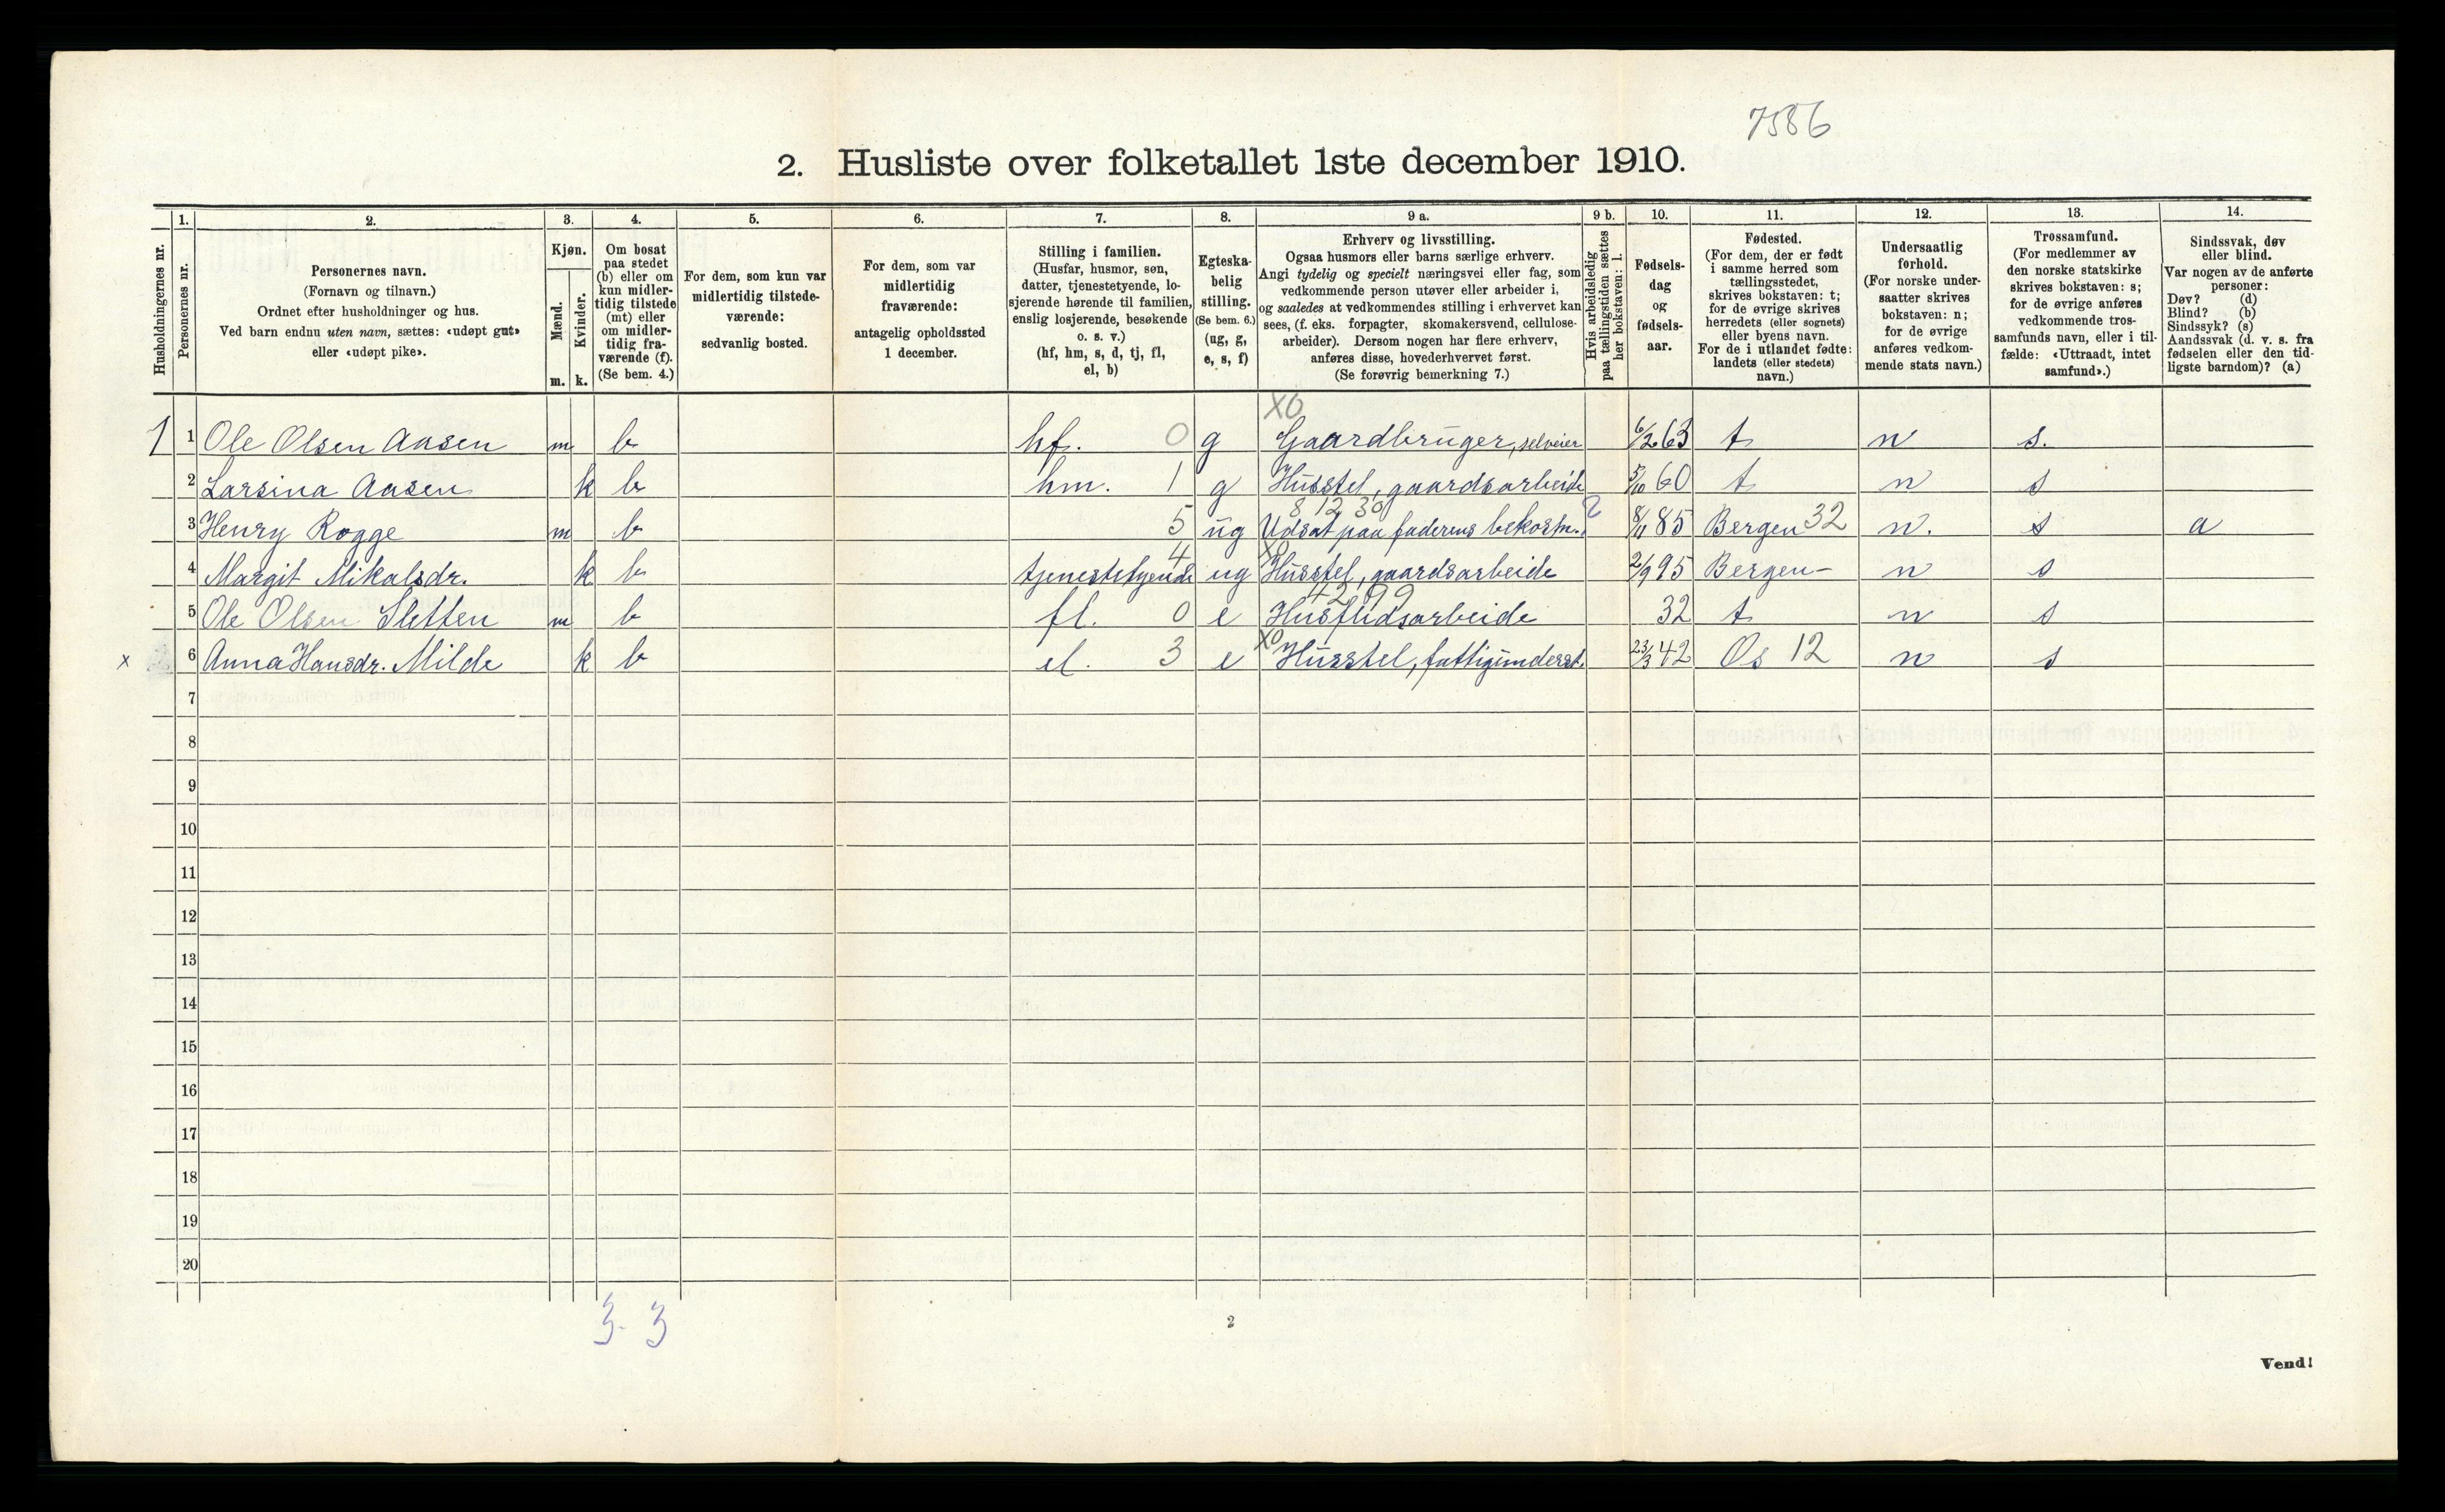 7586
2. Husliste over folketallet 1ste december 1910.
Husholdningernes nr.
1.
Personernes nr.
2.
Personernes navn.
(Fornavn og tilnavn.)
Ordnet efter husholdninger og hus.
Ved barn endnu uten navn, sættes: «udøpt gut»
eller «udøpt pike».
3.
Kjøn.
Mænd.
Kvinder.
m. k.
4.
Om bosat
paa stedet
(b) eller om
kun midler-
tidig tilstede
(mt) eller
om midler-
tidig fra-
værende (f).
(Se bem. 4.)
5.
For dem, som kun var
midlertidig tilstede-
værende:
sedvanlig bosted.
6.
For dem, som var
midlertidig
fraværende:
antagelig opholdssted
1 december.
7.
Stilling i familien.
(Husfar, husmor, søn,
datter, tjenestetyende, lo-
sjerende hørende til familien,
enslig losjerende, besøkende
o. s. v.)
(hf, hm, s, d, tj, fl,
el, b)
8.
Egteska-
belig
stilling.
(Se bem. 6.)
(ug, g,
e, s, f)
9 a.
Erhverv og livsstilling.
Ogsaa husmors eller barns særlige erhverv.
Angi tydelig og specielt næringsvei eller fag, som
vedkommende person utøver eller arbeider i,
og saaledes at vedkommendes stilling i erhvervet kan
sees, (f. eks. forpagter, skomakersvend, cellulose-
arbeider). Dersom nogen har flere erhverv,
anføres disse, hovederhvervet først.
(Se forøvrig bemerkning 7.)
9 b.
Hvis arbeidsledig
paa tællingstiden sættes
her bokstaven: l.
10.
Fødsels-
dag
og
fødsels-
aar.
11.
Fødested.
(For dem, der er født
i samme herred som
tællingsstedet,
skrives bokstaven: t;
for de øvrige skrives
herredets (eller sognets)
eller byens navn.
For de i utlandet fødte:
landets (eller stedets)
navn.)
12.
Undersaatlig
forhold.
(For norske under-
saatter skrives
bokstaven: n;
for de øvrige
anføres vedkom-
mende stats navn.)
13.
Trossamfund.
(For medlemmer av
den norske statskirke
skrives bokstaven: s;
for de øvrige anføres
vedkommende tros-
samfunds navn, eller i til-
fælde: «Uttraadt, intet
samfund».)
14.
Sindssvak, døv
eller blind.
Var nogen av de anførte
personer:
Døv? (d)
Blind? (b)
Sindssyk? (s)
Aandssvak (d. v. s. fra
fødselen eller den tid-
ligste barndom)? (a)
X0
1 1 Ole Olsen Aasen m b hf. 0 g Gaardbruger, selveier 6/2 63 t n s.
2 Larsina Aasen k b hm. 1 g Husstel, gaardsarbeide 5/10 60 t n s
8 12 30 2
3 Henry Rogge m b 5 ug Udsat paa faderens bekostn. 8/11 85 Bergen 32 n. s a
X0
4 Margit Mikalsdr. k b tjenestetyende 4 ug Husstel, gaardsarbeide 2/9 95 Bergen - n s
42,99
5 Ole Olsen Sletten m b fl. 0 e Husflidsarbeide 32 t n s
X0
x 6 Anna Hansdr. Milde k b el. 3 e Husstel, fattigunderst. 23/3 42 Os 12 n s
7
8
9
10
11
12
13
14
15
16
17
18
19
20
3 - 3
2
Vend!